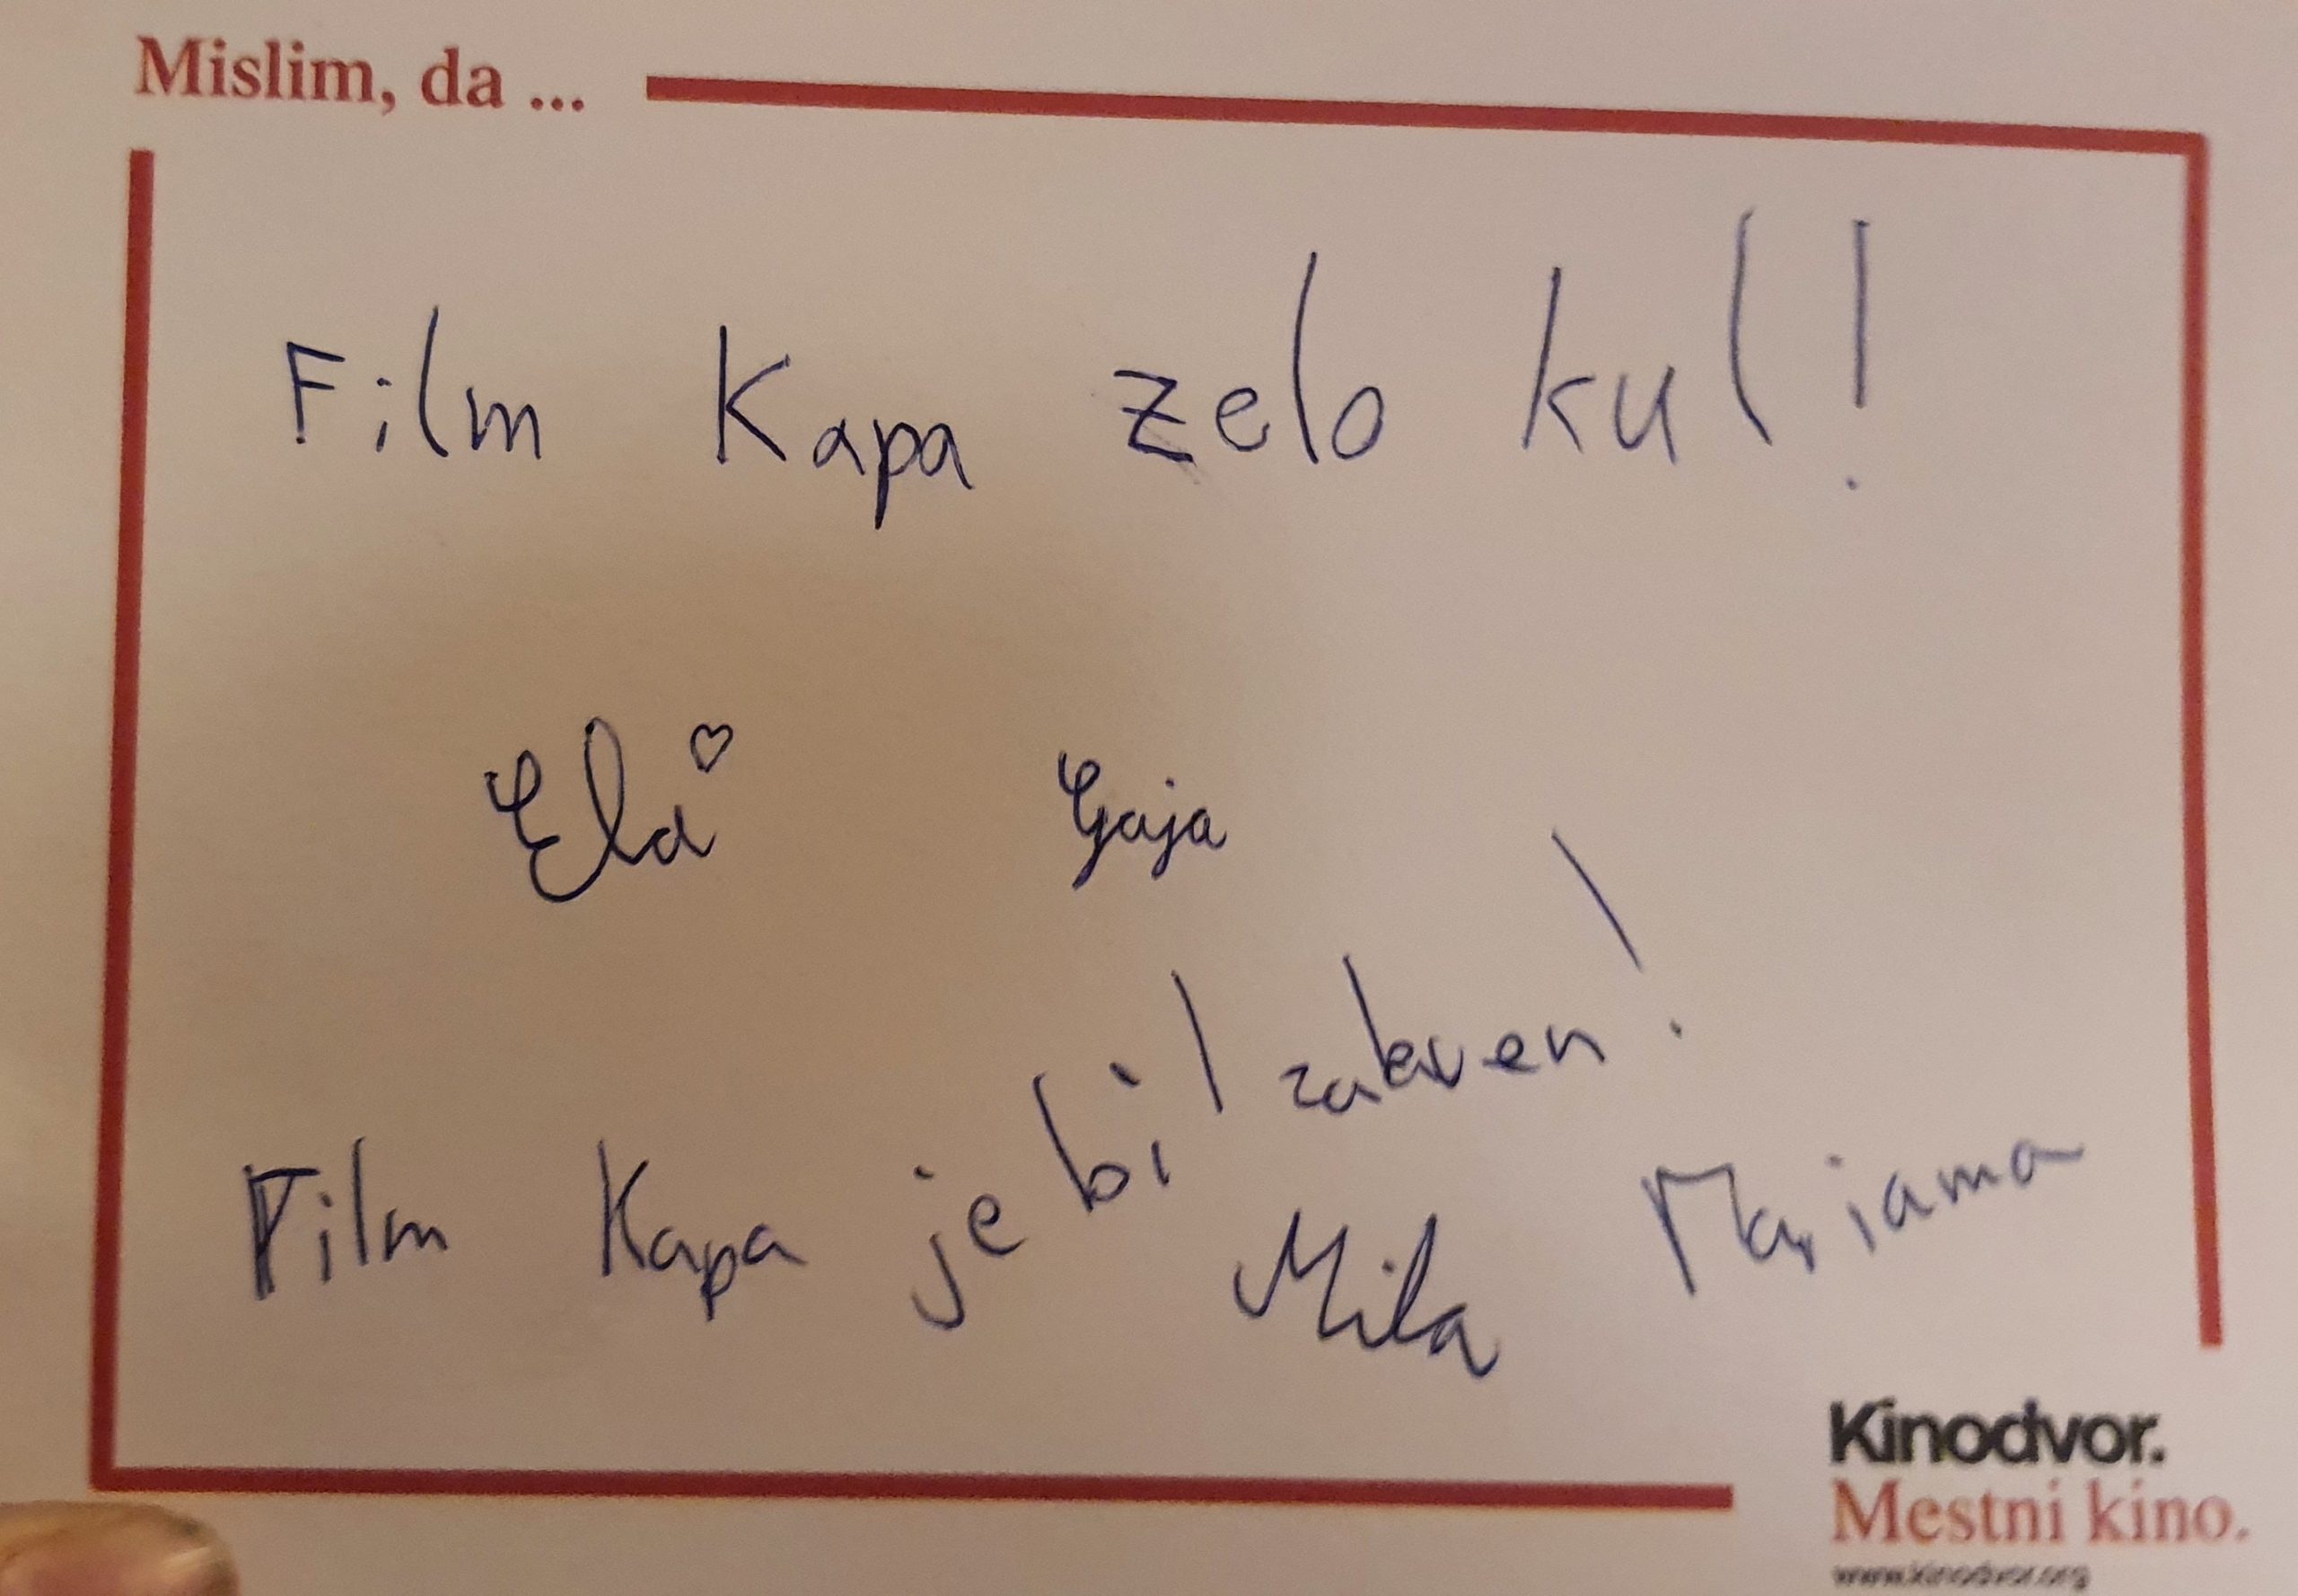 Mislim, da ...
Film Kapa zelo kul!
Ela Gaja
Film Kapa je bil zabaven!
Mila
Kinodvor.
Mestni kino.
www.kinodvor.org